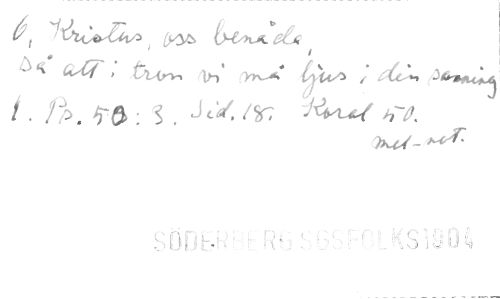 6, Kristus, oss benåda,
så att i tron vi må ljus i din sanning
1. Ps. 50 : 3. Sid. 18. Koral 50.
mel-ret.
SÖDERBERG SGSFOLKS1804